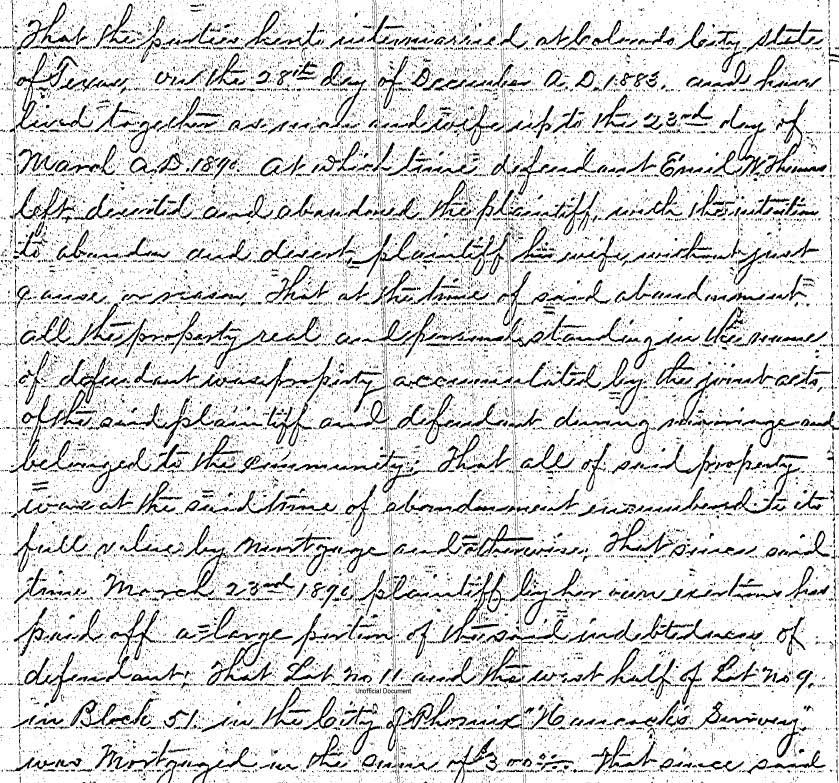 That the parties hereto intermarried at Colorado City state
of Texas, on the 28th day of December A.D. 1883, and have
lived together as man and wife up to the 23rd day of
March A.D. 1890 At which time defendant Emil W. Thomas
left, deserted and abandoned the plaintiff, with the intention
to abandon and desert, plaintiff his wife, without just
cause, or reason, That at the time of said abandonment,
all the property real and personal standing in the name
of defendant was property accumulated by the joint acts,
of the said plaintiff and defendant during marriage and
belonged to the community; That all of said property
was at the said time of abandonment incumbered to its
full value by Mortgage and otherwise; That since said
time March 23rd 1890 plaintiff by her own exertions has
paid off a large portion of the said indebtedness of
defendant; That Lot no 11 and the west half of Lot no 9,
Unofficial Document
in Block 51, in the City of Phoenix "Hancock's Survey"
was Mortgaged in the sum of $300 That since said